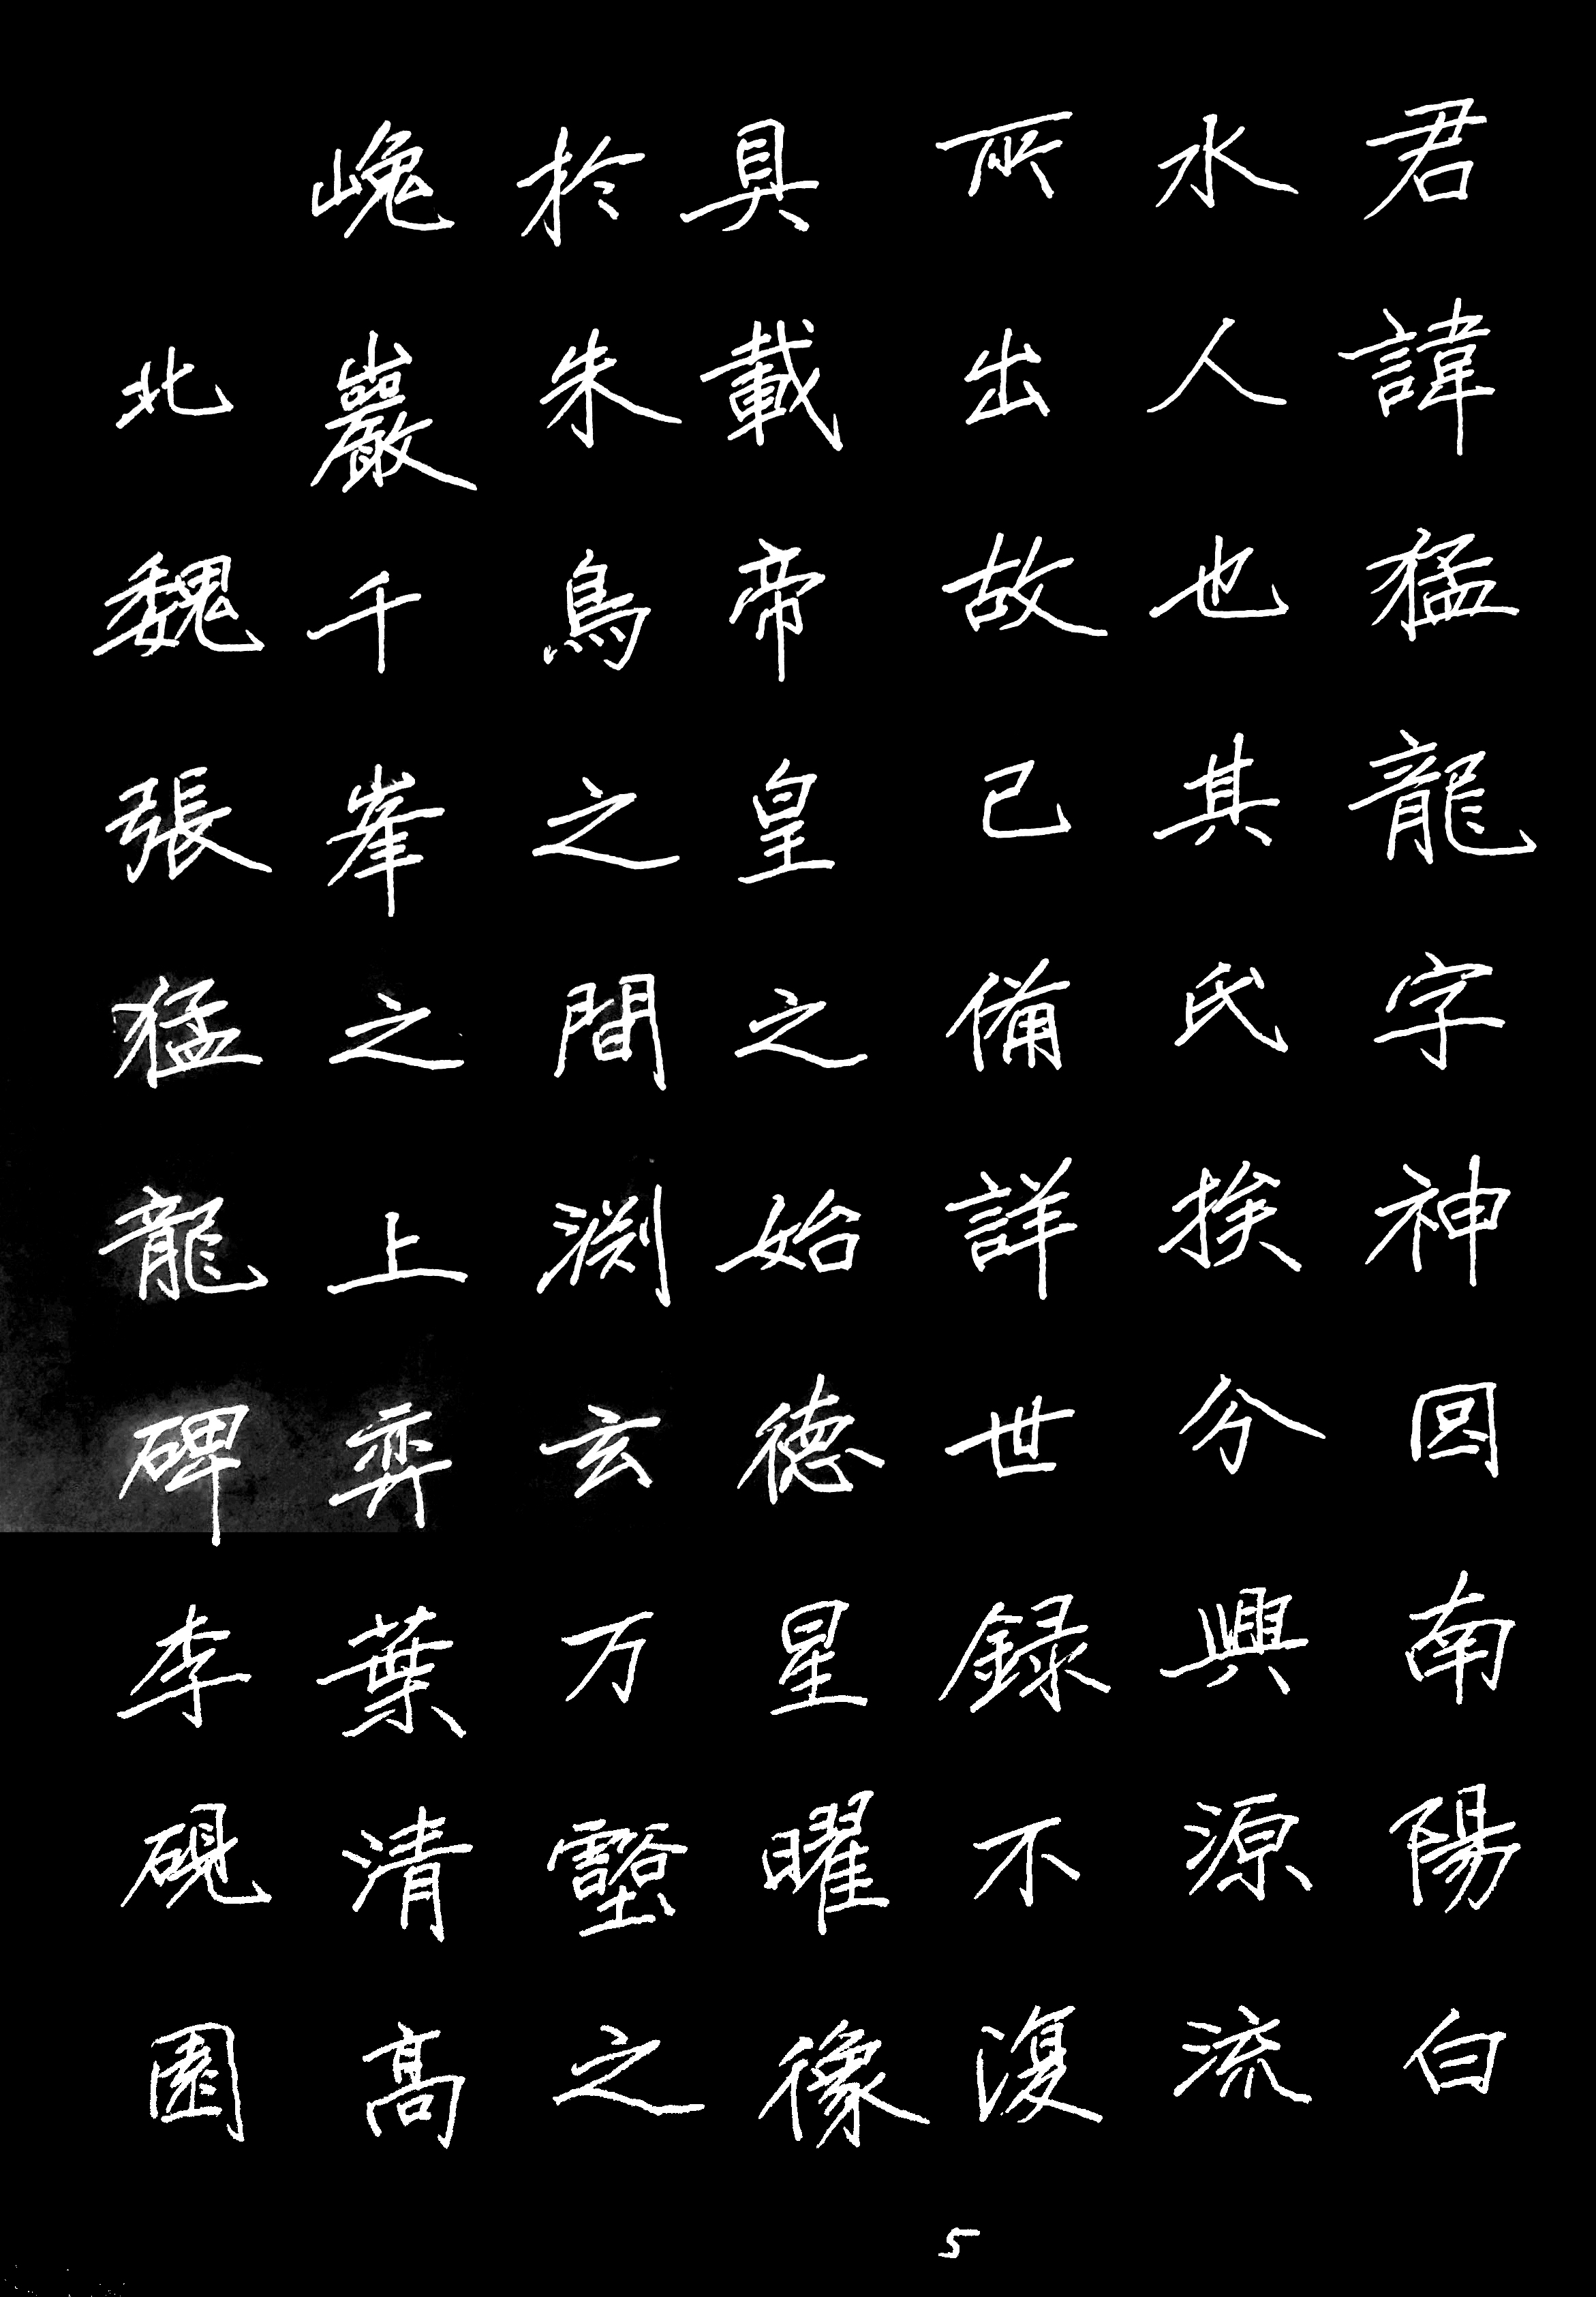 君諱猛龍字神囙南陽白
水人也其氏族分興源流
所出故已備詳世録不復
具載帝皇之始德星曜像
於朱鳥之間淵玄万壑之
嵬巖千峯之上弈葉清高
北魏張猛龍碑李硯園
5